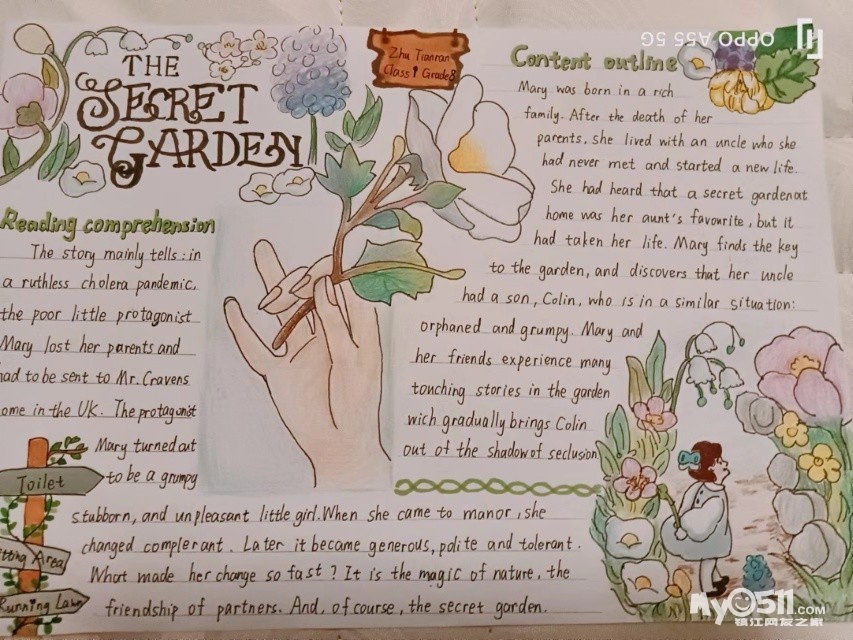 THE
SECRET
GARDEN
Zhu Tianran
Class 1 Grade 8
OPPO A55 5G
Content outline
Mary was born in a rich
family. After the death of her
parents, she lived with an uncle who she
had never met and started a new life.
She had heard that a secret garden at
home was her aunt's favourite, but it
had taken her life. Mary finds the key
to the garden, and discovers that her uncle
had a son, Colin, who is in a similar situation:
orphaned and grumpy. Mary and
her friends experience many
touching stories in the garden
wich gradually brings Colin
out of the shadow of seclusion.
Reading comprehension
The story mainly tells: in
a ruthless cholera pandemic,
the poor little protagonist
Mary lost her parents and
had to be sent to Mr. Cravens
ome in the UK. The protagonist
Mary turned out
to be a grumpy
stubborn, and unpleasant little girl. When she came to manor, she
changed complerant. Later it became generous, polite and tolerant.
What made her change so fast? It is the magic of nature, the
friendship of partners. And, of course, the secret garden.
Toilet
tting Area
Running Lawn
my0511.com
镇江网友之家